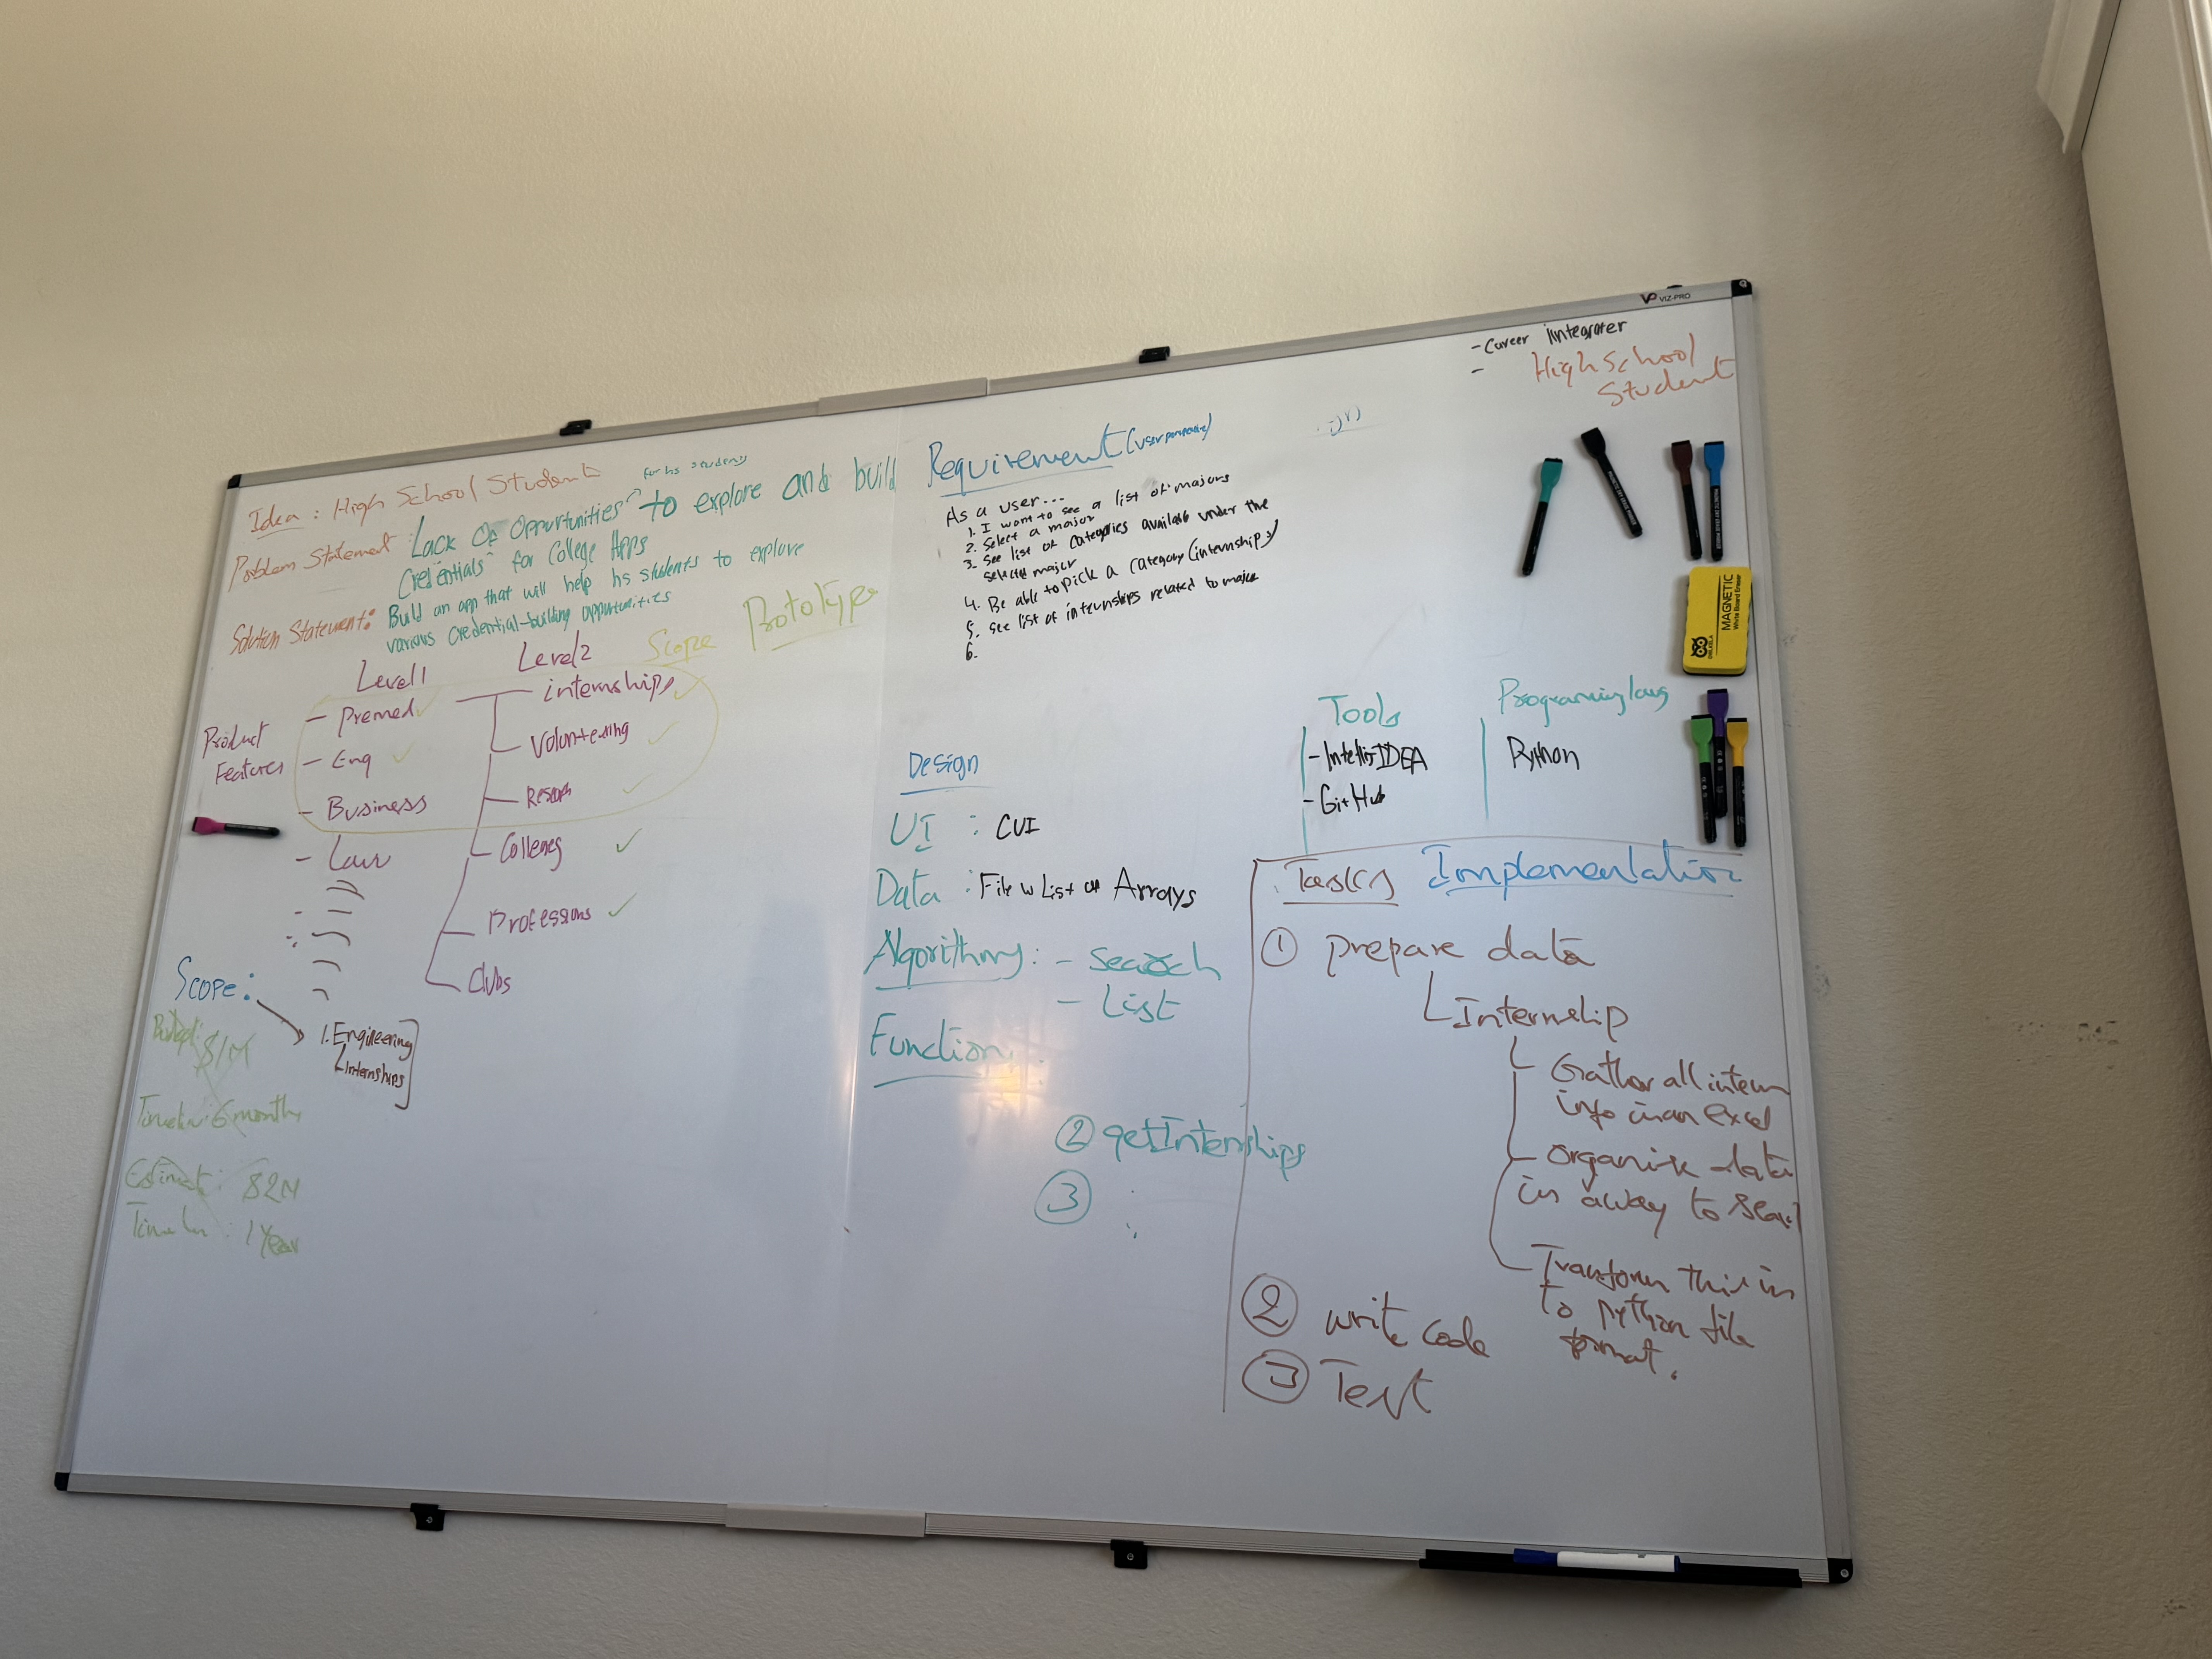 VIZ-PRO
- Career Iintegrater
-
High School
Student
Idea : High School Student
for hs students
Problem Statement : Lack of Opportunities to explore and build
Credentials for College Apps
Solution Statement: Build an app that will help hs students to explore
various credential-building opportunities
Scope Prototype
Level1
Level2
Product
Features
- Premed ✓
- Eng ✓
- Business
- Law
internships ✓
Volunteering ✓
✓
✓
Professions ✓
Clubs
Scope:
1. Engineering
Internships
$1M
6 months
: $2M
: 1 Year
Requirement
As a user...
1. I want to see a list of majors
2. Select a major
3. See list of categories available under the
selected major
4. Be able to pick a category (internship)
5. see list of internships related to major
6.
Design
UI : CUI
Data : File w List or Arrays
Algorithm : - Search
- List
Function
② getInternships
③
Tools
- GitHub
Python
MAGNETIC
White Board Eraser
Tasks Implementation
① prepare data
Internship
Gather all intern
info in an excel
Organize data
in a way to
Transform this in
to python file
format.
② write code
③ Test